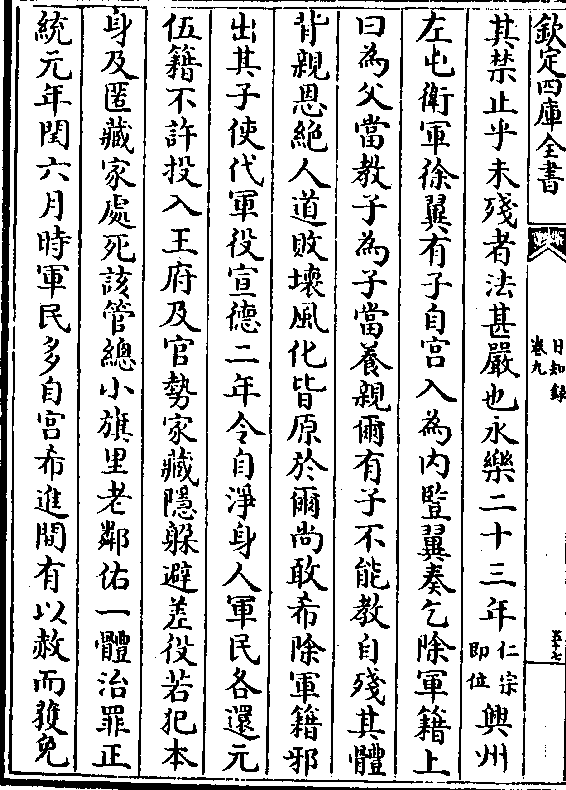 欽定四庫全書
日知錄
卷九
五十七
其禁止乎未殘者法甚嚴也永樂二十三年仁宗即位興州
左屯衛軍徐翼有子自宫入為内監翼奏乞除軍籍上
曰為父當教子為子當養親爾有子不能教自殘其體
背親恩絶人道敗壞風化皆原於爾尚敢希除軍籍邪
出其子使代軍役宣德二年令自淨身人軍民各還元
伍籍不許投入王府及官勢家藏隱躲避差役若犯本
身及匿藏家處死該管總小旗里老鄰佑一體治罪正
統元年閏六月時軍民多自宫希進間有以赦而獲免